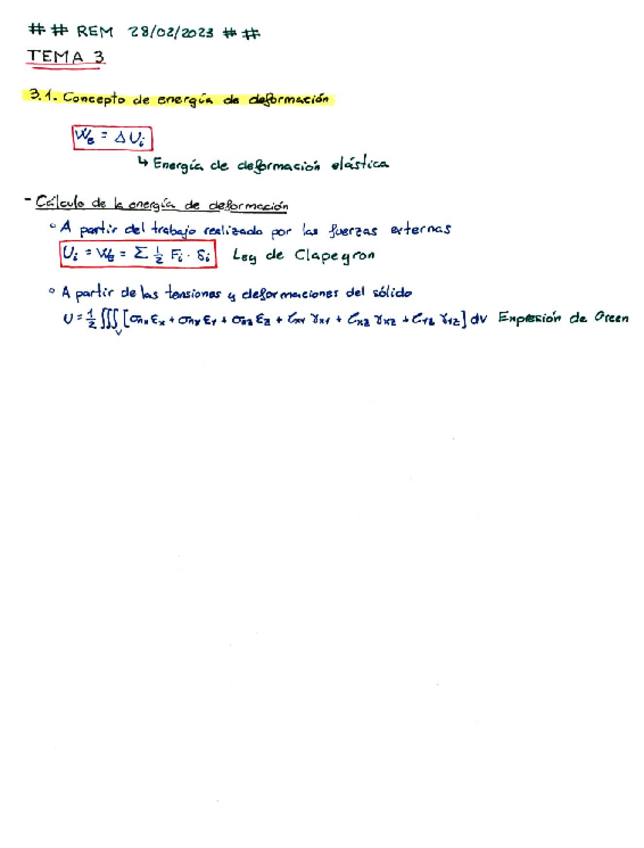 ## REM 28/02/2023 ##
TEMA 3
3.1. Concepto de energía de deformación
We = ΔUi
↳ Energía de deformación elástica
- Cálculo de la energía de deformación
° A partir del trabajo realizado por las fuerzas externas
Ui = We = Σ 1/2 Fi · δi Ley de Clapeyron
° A partir de las tensiones y deformaciones del sólido
U = 1/2 ∭v [σnx εx + σny εy + σnz εz + τxy γxy + τxz γxz + τyz γyz] dv Expresión de Green